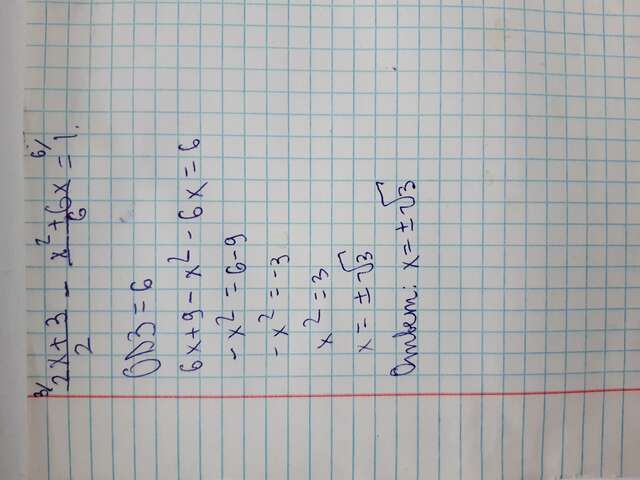 ³/ (2x+3)/2 - (x²+6x)/6 ⁶/ = 1.
ОДЗ = 6
6x+9-x²-6x=6
-x²=6-9
-x²=-3
x²=3
x=±√3
Ответ: x=±√3